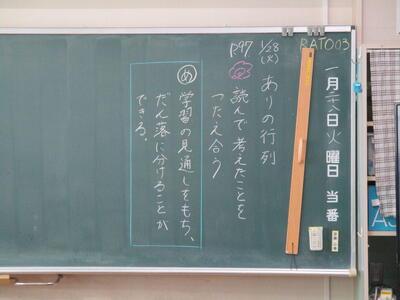 RAT003
一月二十八日火曜日 当番
1/28
(火)
P.97
ありの行列
読んで考えたことを
つたえ合う
め 学習の見通しをもち、
だん落に分けることが
できる。